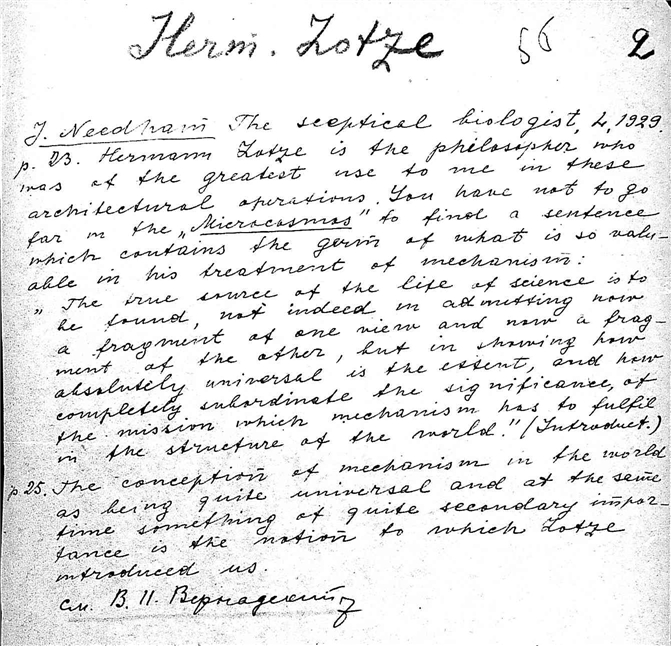 Herm. Lotze 56 2
J. Needham The sceptical biologist, L, 1929.
p. 23. Hermann Lotze is the philosopher who
was of the greatest use to me in these
architectural operations. You have not to go
far in the „Microcosmos" to find a sentence
which contains the germ of what is so valu-
able in his treatment of mechanism:
" The true source of the life of science is to
be found, not indeed in admitting now
a fragment of one view and now a frag-
ment of the other, but in showing how
absolutely universal is the extent, and how
completely subordinate the significance, of
the mission which mechanism has to fulfil
in the structure of the world." (Introduct.)
p 25. The conception of mechanism in the world
as being quite universal and at the same
time something of quite secondary impor-
tance is the notion to which Lotze
introduced us.
см. В. И. Вернадский